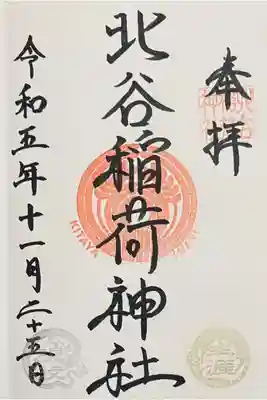 奉拝
北谷稲荷神社
KITAYA
令和五年十一月二十五日